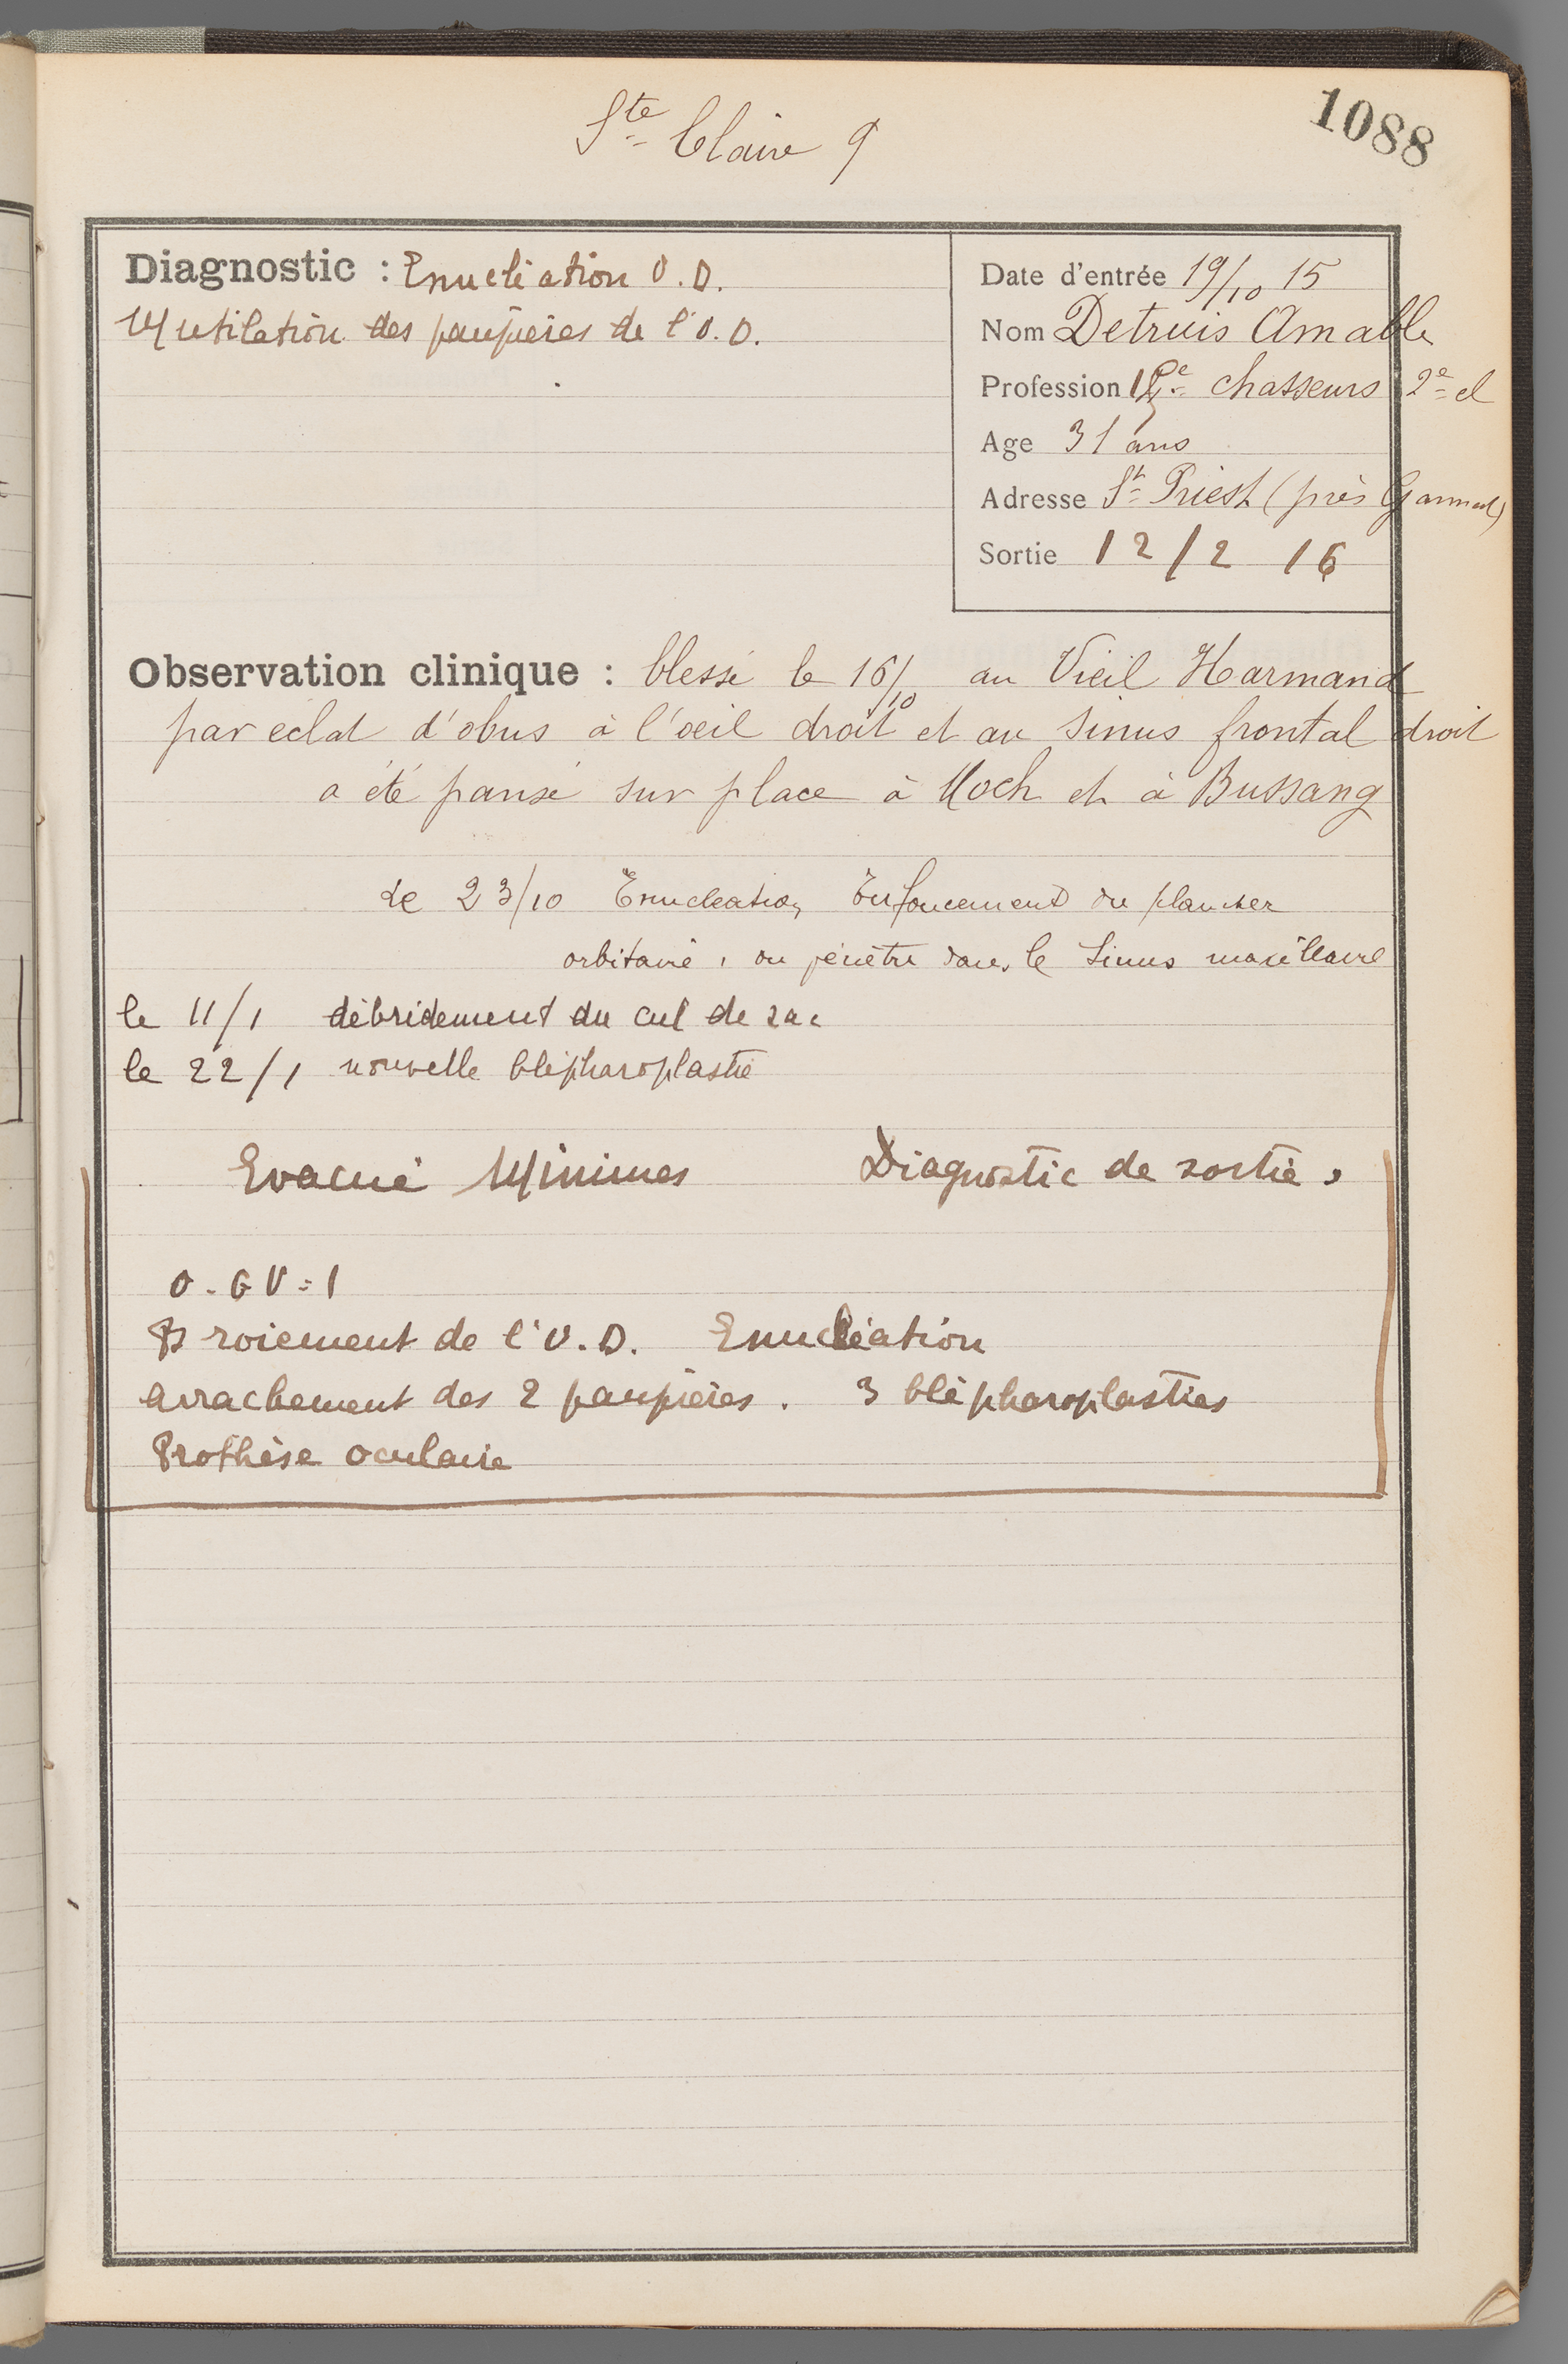 Ste Claire 9
1088
Diagnostic : Enucléation O.D.
Mutilation des paupières de l'O.D.
Date d'entrée 19/10 15
Nom Detruis Amable
Profession chasseurs 2e cl
Age 31 ans
Adresse St Priest (près Gannat)
Sortie 12/2 16
Observation clinique : blessé le 16/10 au Vieil Harmand
par eclat d'obus à l'oeil droit et au sinus frontal droit
a été pansé sur place à Moch et à Bussang
Le 23/10 Enucleation Enfoncement du plancher
orbitaire, on pénètre dans le sinus maxillaire
le 11/1 débridement du cul de sac
le 22/1 nouvelle blépharoplastie
Evacué Minimes Diagnostic de sortie,
O.G V=1
Broiement de l'O.D. Enucléation
arrachement des 2 paupières. 3 blépharoplasties
Prothèse oculaire